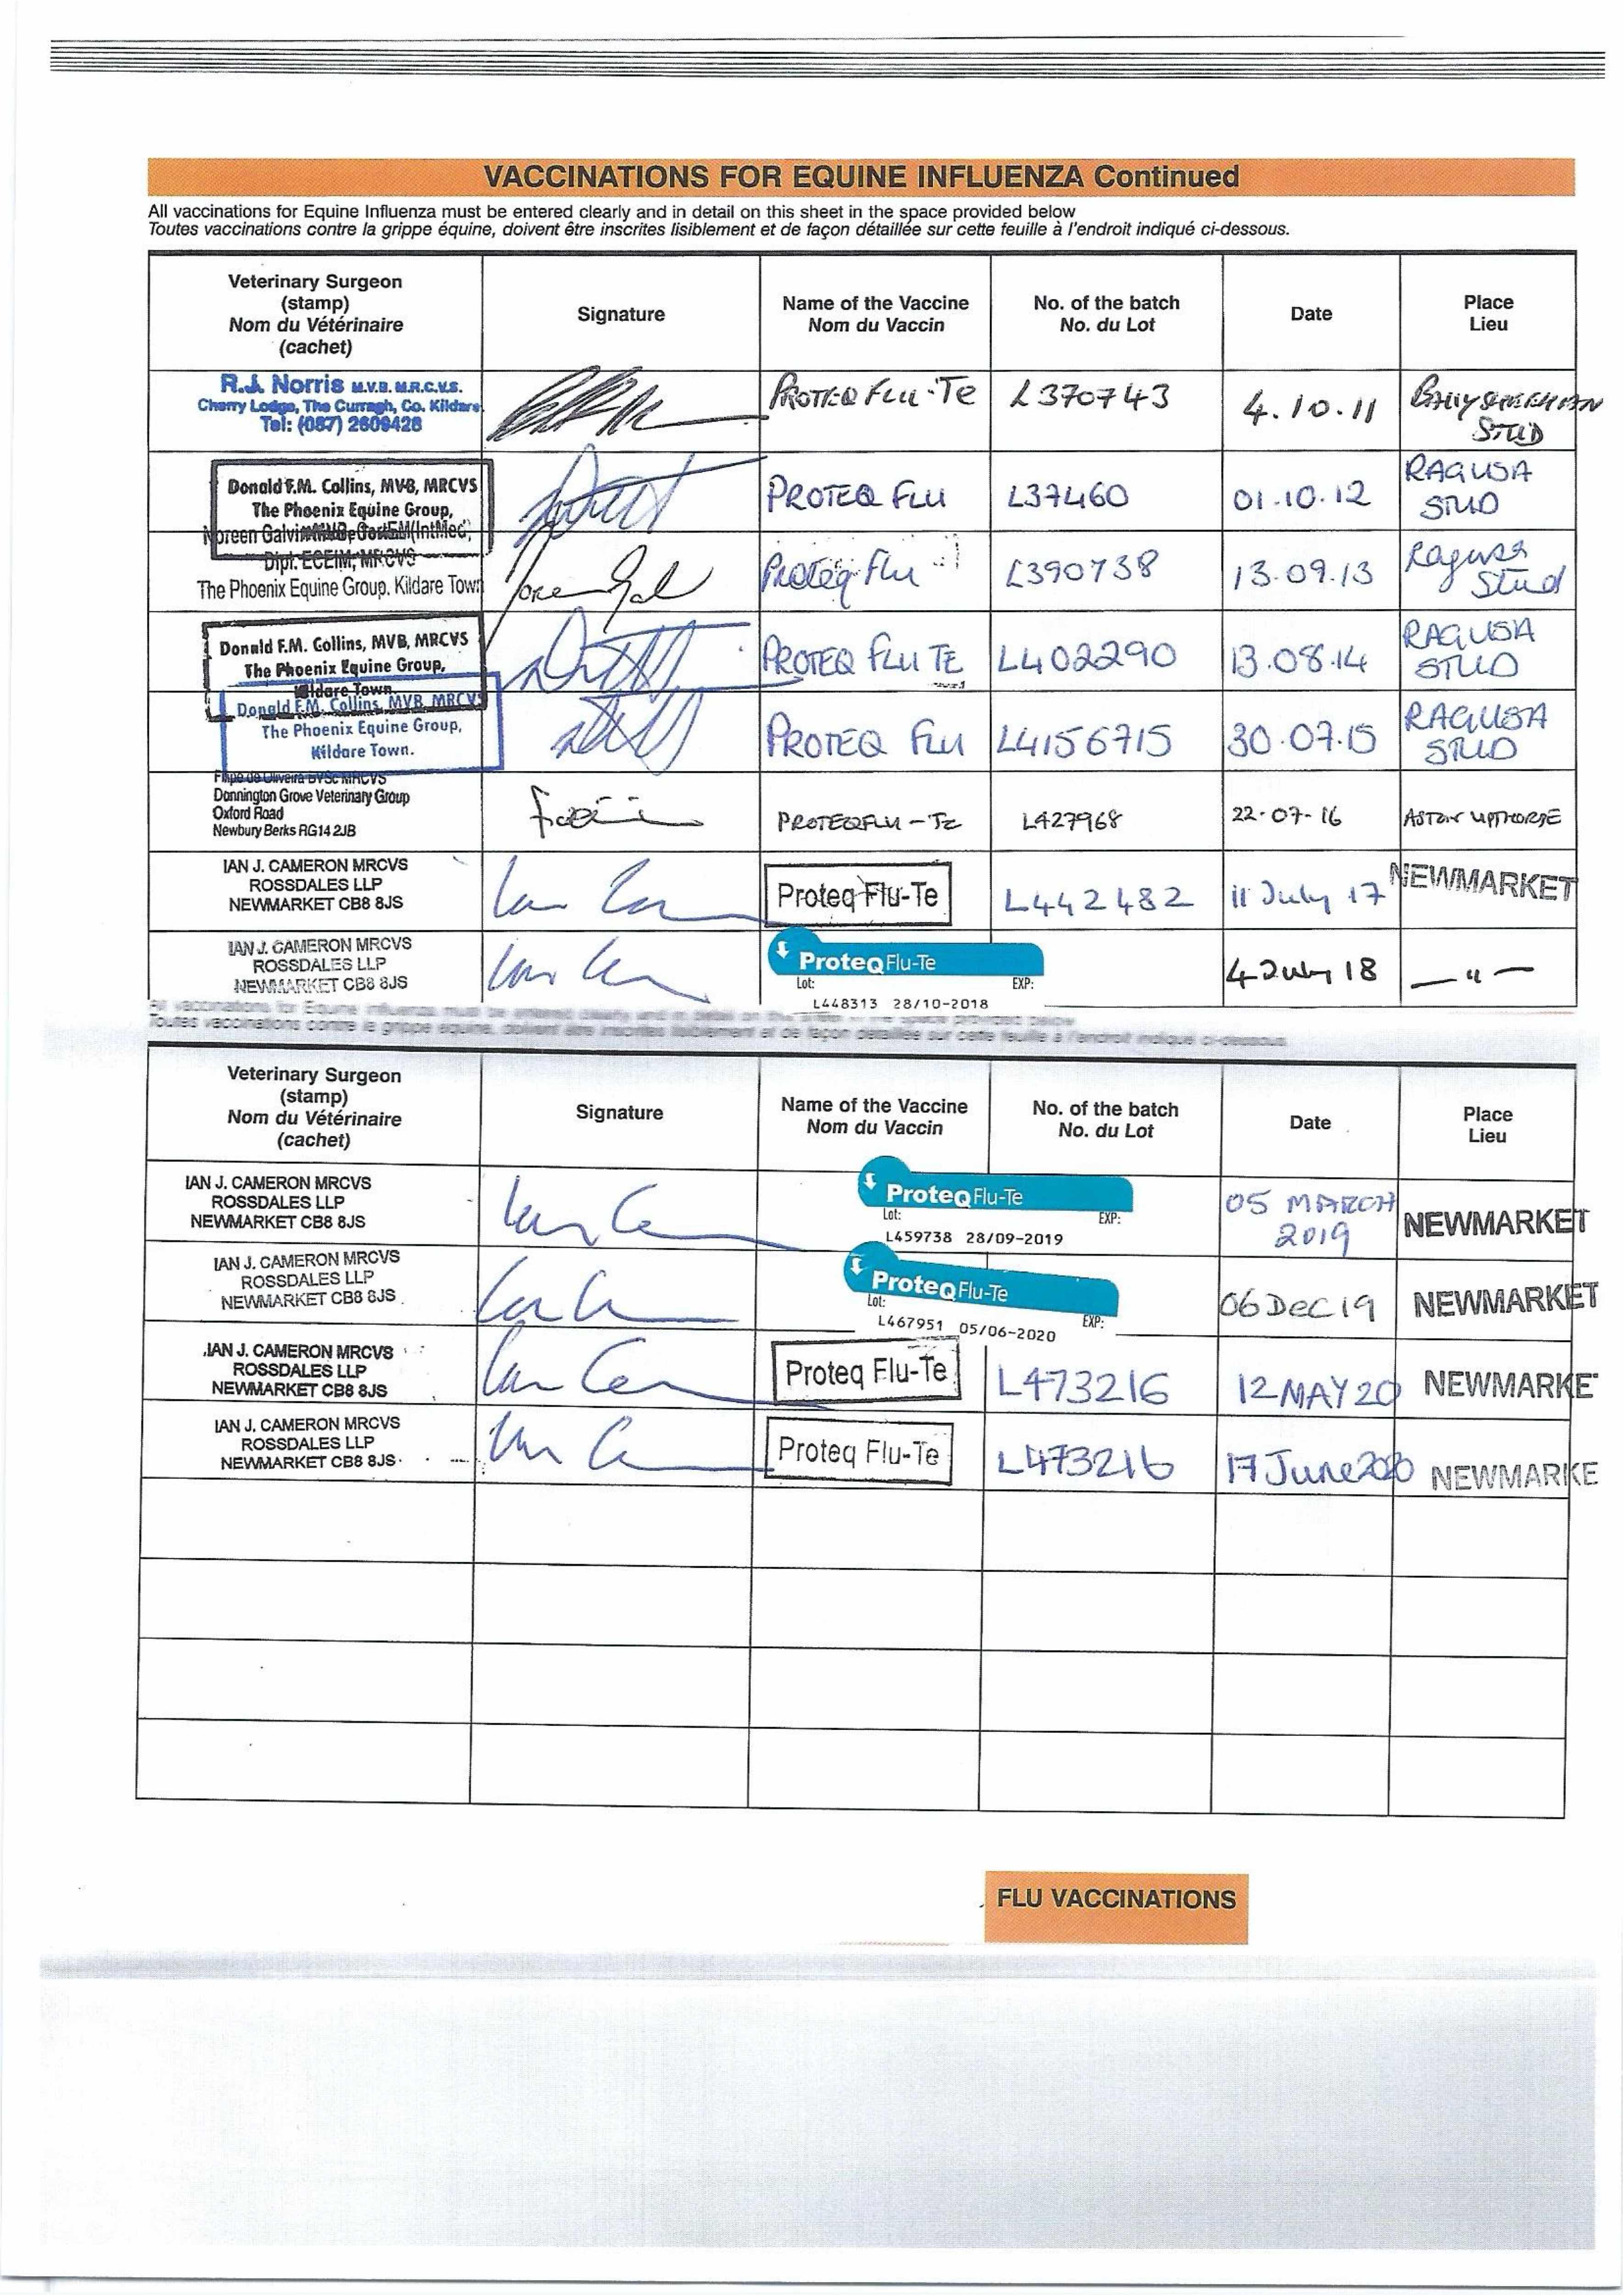 VACCINATIONS FOR EQUINE INFLUENZA Continued
All vaccinations for Equine Influenza must be entered clearly and in detail on this sheet in the space provided below
Toutes vaccinations contre la grippe équine, doivent être inscrites lisiblement et de façon détaillée sur cette feuille à l'endroit indiqué ci-dessous.
Veterinary Surgeon
(stamp)
Nom du Vétérinaire
(cachet)
Signature
Name of the Vaccine
Nom du Vaccin
No. of the batch
No. du Lot
Date
Place
Lieu
R.J. Norris M.V.B. M.R.C.V.S.
Cherry Lodge, The Curragh, Co. Kildare
Tel: (087) 2609428
PROTEQ FLU-Te
L370743
4.10.11
STUD
Donald F.M. Collins, MVB, MRCVS
The Phoenix Equine Group,
PROTEQ FLU
L37460
01.10.12
RAGUSA
STUD
Noreen Galvin
Dipl. ECEIM, MRCVS
The Phoenix Equine Group, Kildare Town
Proteq Flu
L390738
13.09.13
Ragusa
Stud
Donald F.M. Collins, MVB, MRCVS
The Phoenix Equine Group,
Kildare Town.
PROTEQ FLU TE
L402290
13.08.14
RAGUSA
STUD
Donald F.M. Collins, MVB, MRCVS
The Phoenix Equine Group,
Kildare Town.
PROTEQ FLU
L4156715
30.07.15
RAGUSA
STUD
Filipe de Oliveira BVSc MRCVS
Donnington Grove Veterinary Group
Oxford Road
Newbury Berks RG14 2JB
PROTEQFLU-TE
L427968
22-07-16
ASTON UPTHORPE
IAN J. CAMERON MRCVS
ROSSDALES LLP
NEWMARKET CB8 8JS
Proteq Flu-Te
L442482
11 July 17
NEWMARKET
IAN J. CAMERON MRCVS
ROSSDALES LLP
NEWMARKET CB8 8JS
ProteqFlu-Te
Lot: EXP:
L448313 28/10-2018
4 July 18
— " —
All vaccinations for Equine Influenza must be entered clearly and in detail on
Toutes vaccinations contre la grippe équine, doivent être inscrites lisiblement et de façon détaillée sur cette feuille à l'endroit indiqué ci-dessous.
Veterinary Surgeon
(stamp)
Nom du Vétérinaire
(cachet)
Signature
Name of the Vaccine
Nom du Vaccin
No. of the batch
No. du Lot
Date
Place
Lieu
IAN J. CAMERON MRCVS
ROSSDALES LLP
NEWMARKET CB8 8JS
ProteqFlu-Te
Lot: EXP:
L459738 28/09-2019
05 MARCH
2019
NEWMARKET
IAN J. CAMERON MRCVS
ROSSDALES LLP
NEWMARKET CB8 8JS
ProteqFlu-Te
Lot: EXP:
L467951 05/06-2020
06 Dec 19
NEWMARKET
IAN J. CAMERON MRCVS
ROSSDALES LLP
NEWMARKET CB8 8JS
Proteq Flu-Te
L473216
12 MAY 20
NEWMARKE
IAN J. CAMERON MRCVS
ROSSDALES LLP
NEWMARKET CB8 8JS
Proteq Flu-Te
L473216
17 June 2020
NEWMARKE
FLU VACCINATIONS